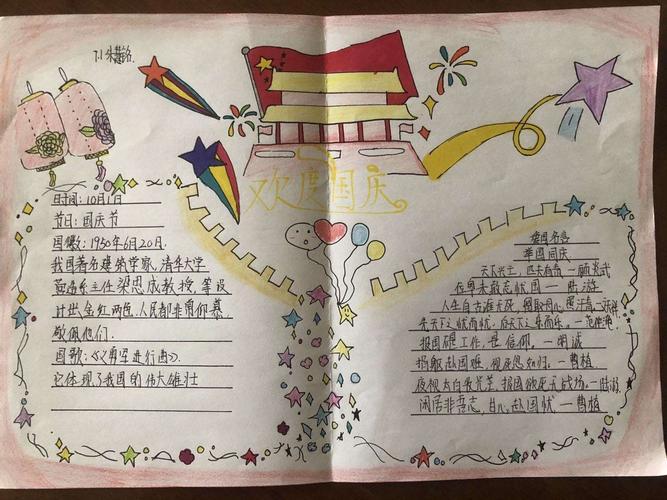 7.1
欢度国庆
时间:10月1日
节日:国庆节
国徽:1950年6月20日.
我国著名建筑学家,清华大学
系主任梁思成教授等设
计出,金红两色.人民都非常仰慕,
敬佩他们.
国歌:《义勇军进行曲》.
它体现了我国的伟大雄壮
爱国名言
举国同庆
天下兴亡,匹夫有责一顾炎武
位卑未敢忘忧国一陆游
人生自古谁无死,留取丹心照汗青一
先天下之忧而忧,后天下之乐而乐.一范仲淹
报国
捐躯赴国难,视死忽如归.一曹植
夜视太白收光芒,报国欲死无战场.一陆游
闲居非吾志,甘心赴国忧一曹植